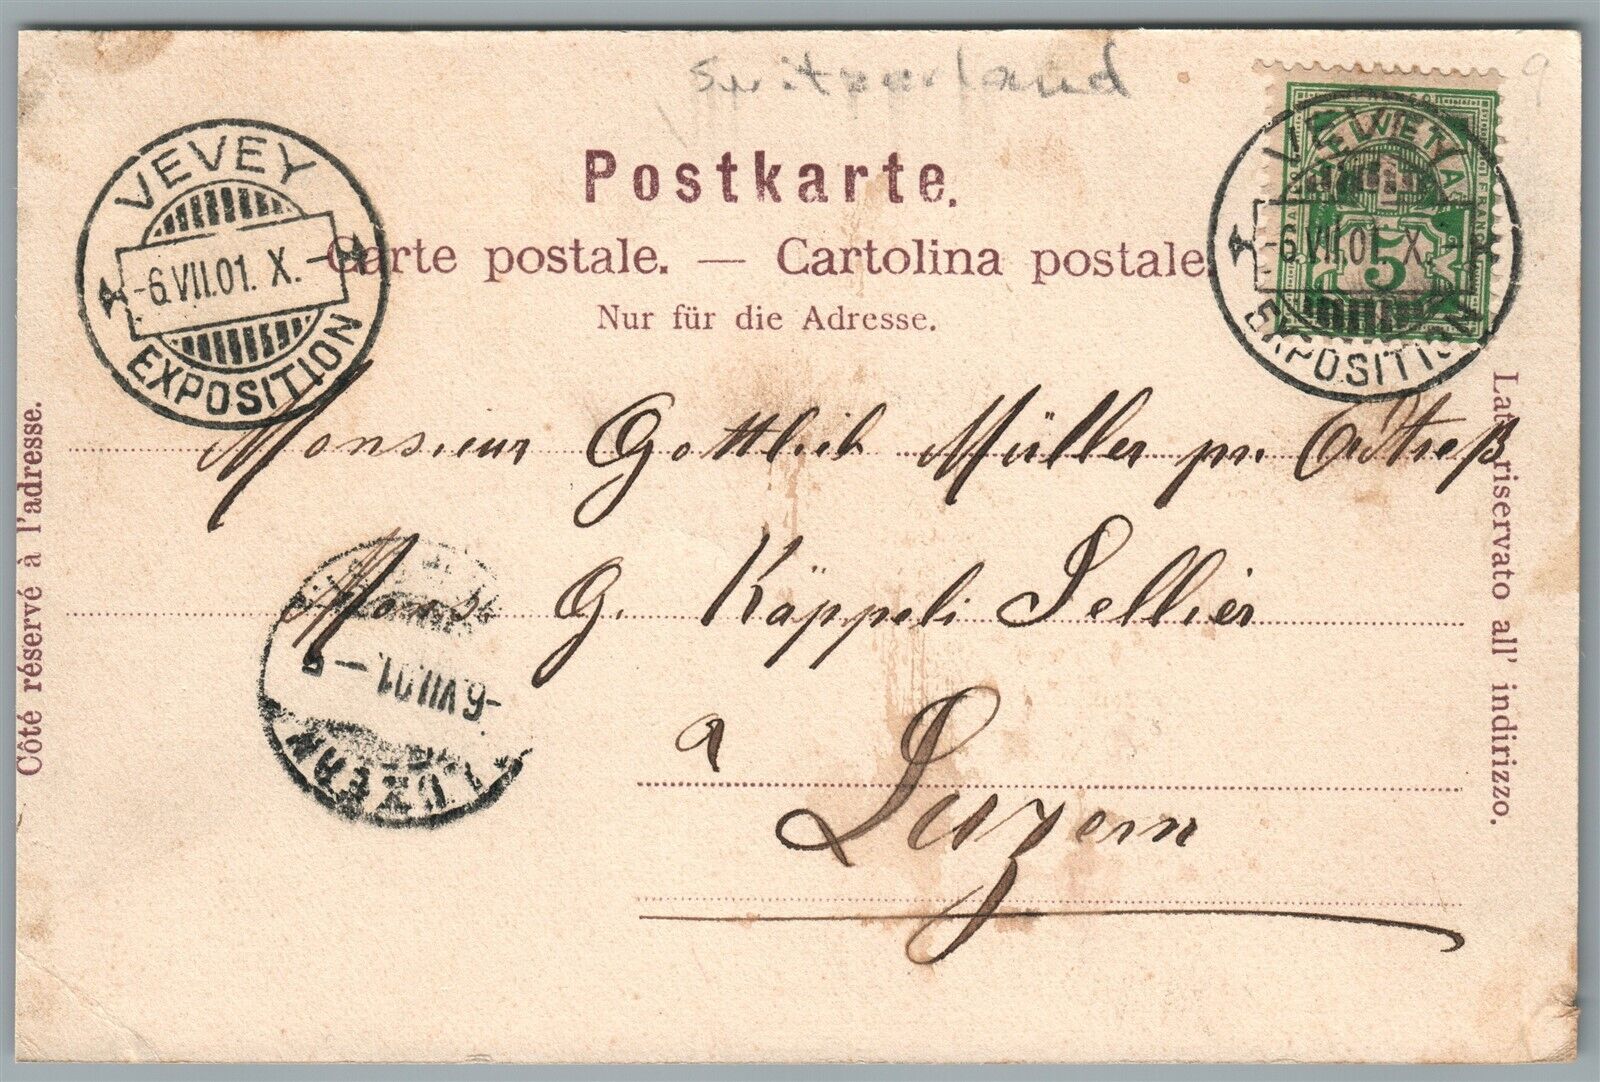 Switzerland
9
VEVEY
-6.VII.01. X.-
EXPOSITION
HELVETIA
FRANCO
5
-6.VII.01. X.-
EXPOSITION
Postkarte.
Carte postale. — Cartolina postale.
Nur für die Adresse.
Côté réservé à l'adresse.
Lato riservato all' indirizzo.
Monsieur Gottlieb Müller pr.
Mons. G. Käppeli Sellier
a
Luzern
-6.VII.01.-
LUZERN